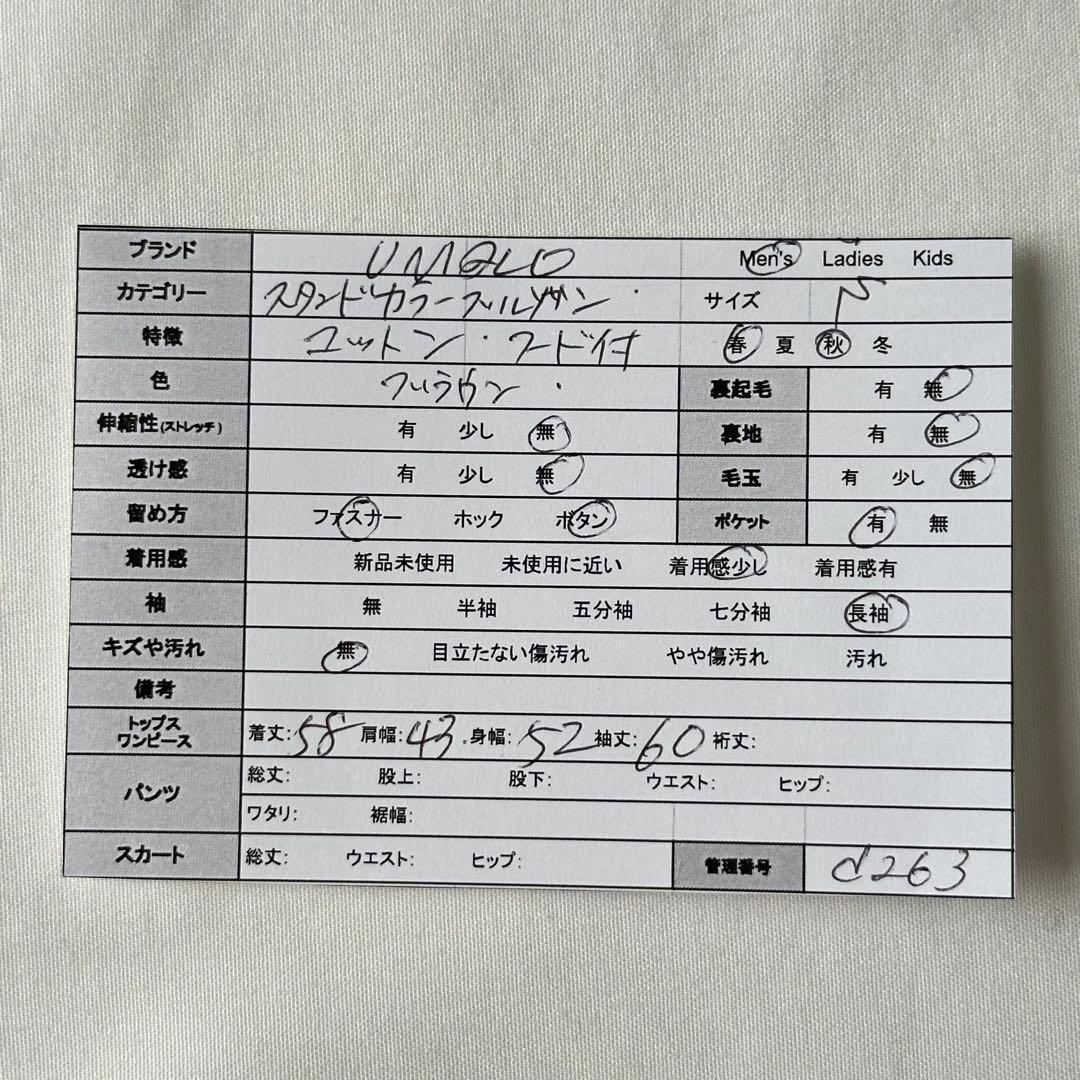 ブランド UNIQLO Men's Ladies Kids
カテゴリー スタンドカラーブルゾン サイズ
特徴 コットン・フード付 春 夏 秋 冬
色 ブラウン 裏起毛 有 無
伸縮性(ストレッチ) 有 少し 無 裏地 有 無
透け感 有 少し 無 毛玉 有 少し 無
留め方 ファスナー ホック ボタン ポケット 有 無
着用感 新品未使用 未使用に近い 着用感少し 着用感有
袖 無 半袖 五分袖 七分袖 長袖
キズや汚れ 無 目立たない傷汚れ やや傷汚れ 汚れ
備考
トップス
ワンピース 着丈:58 肩幅:43 身幅:52 袖丈:60 裄丈:
パンツ 総丈: 股上: 股下: ウエスト: ヒップ:
ワタリ: 裾幅:
スカート 総丈: ウエスト: ヒップ: 管理番号 d263